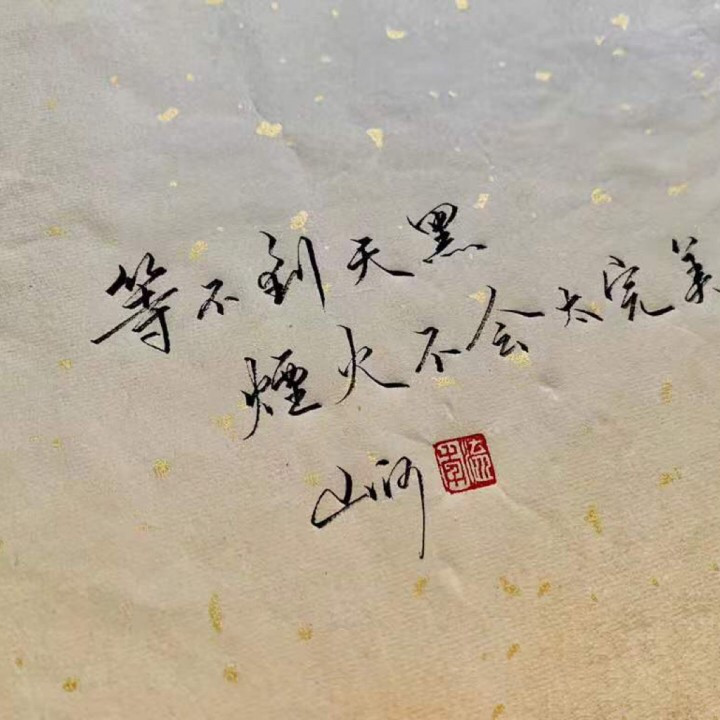 等不到天黑
煙火不会太完美
山河